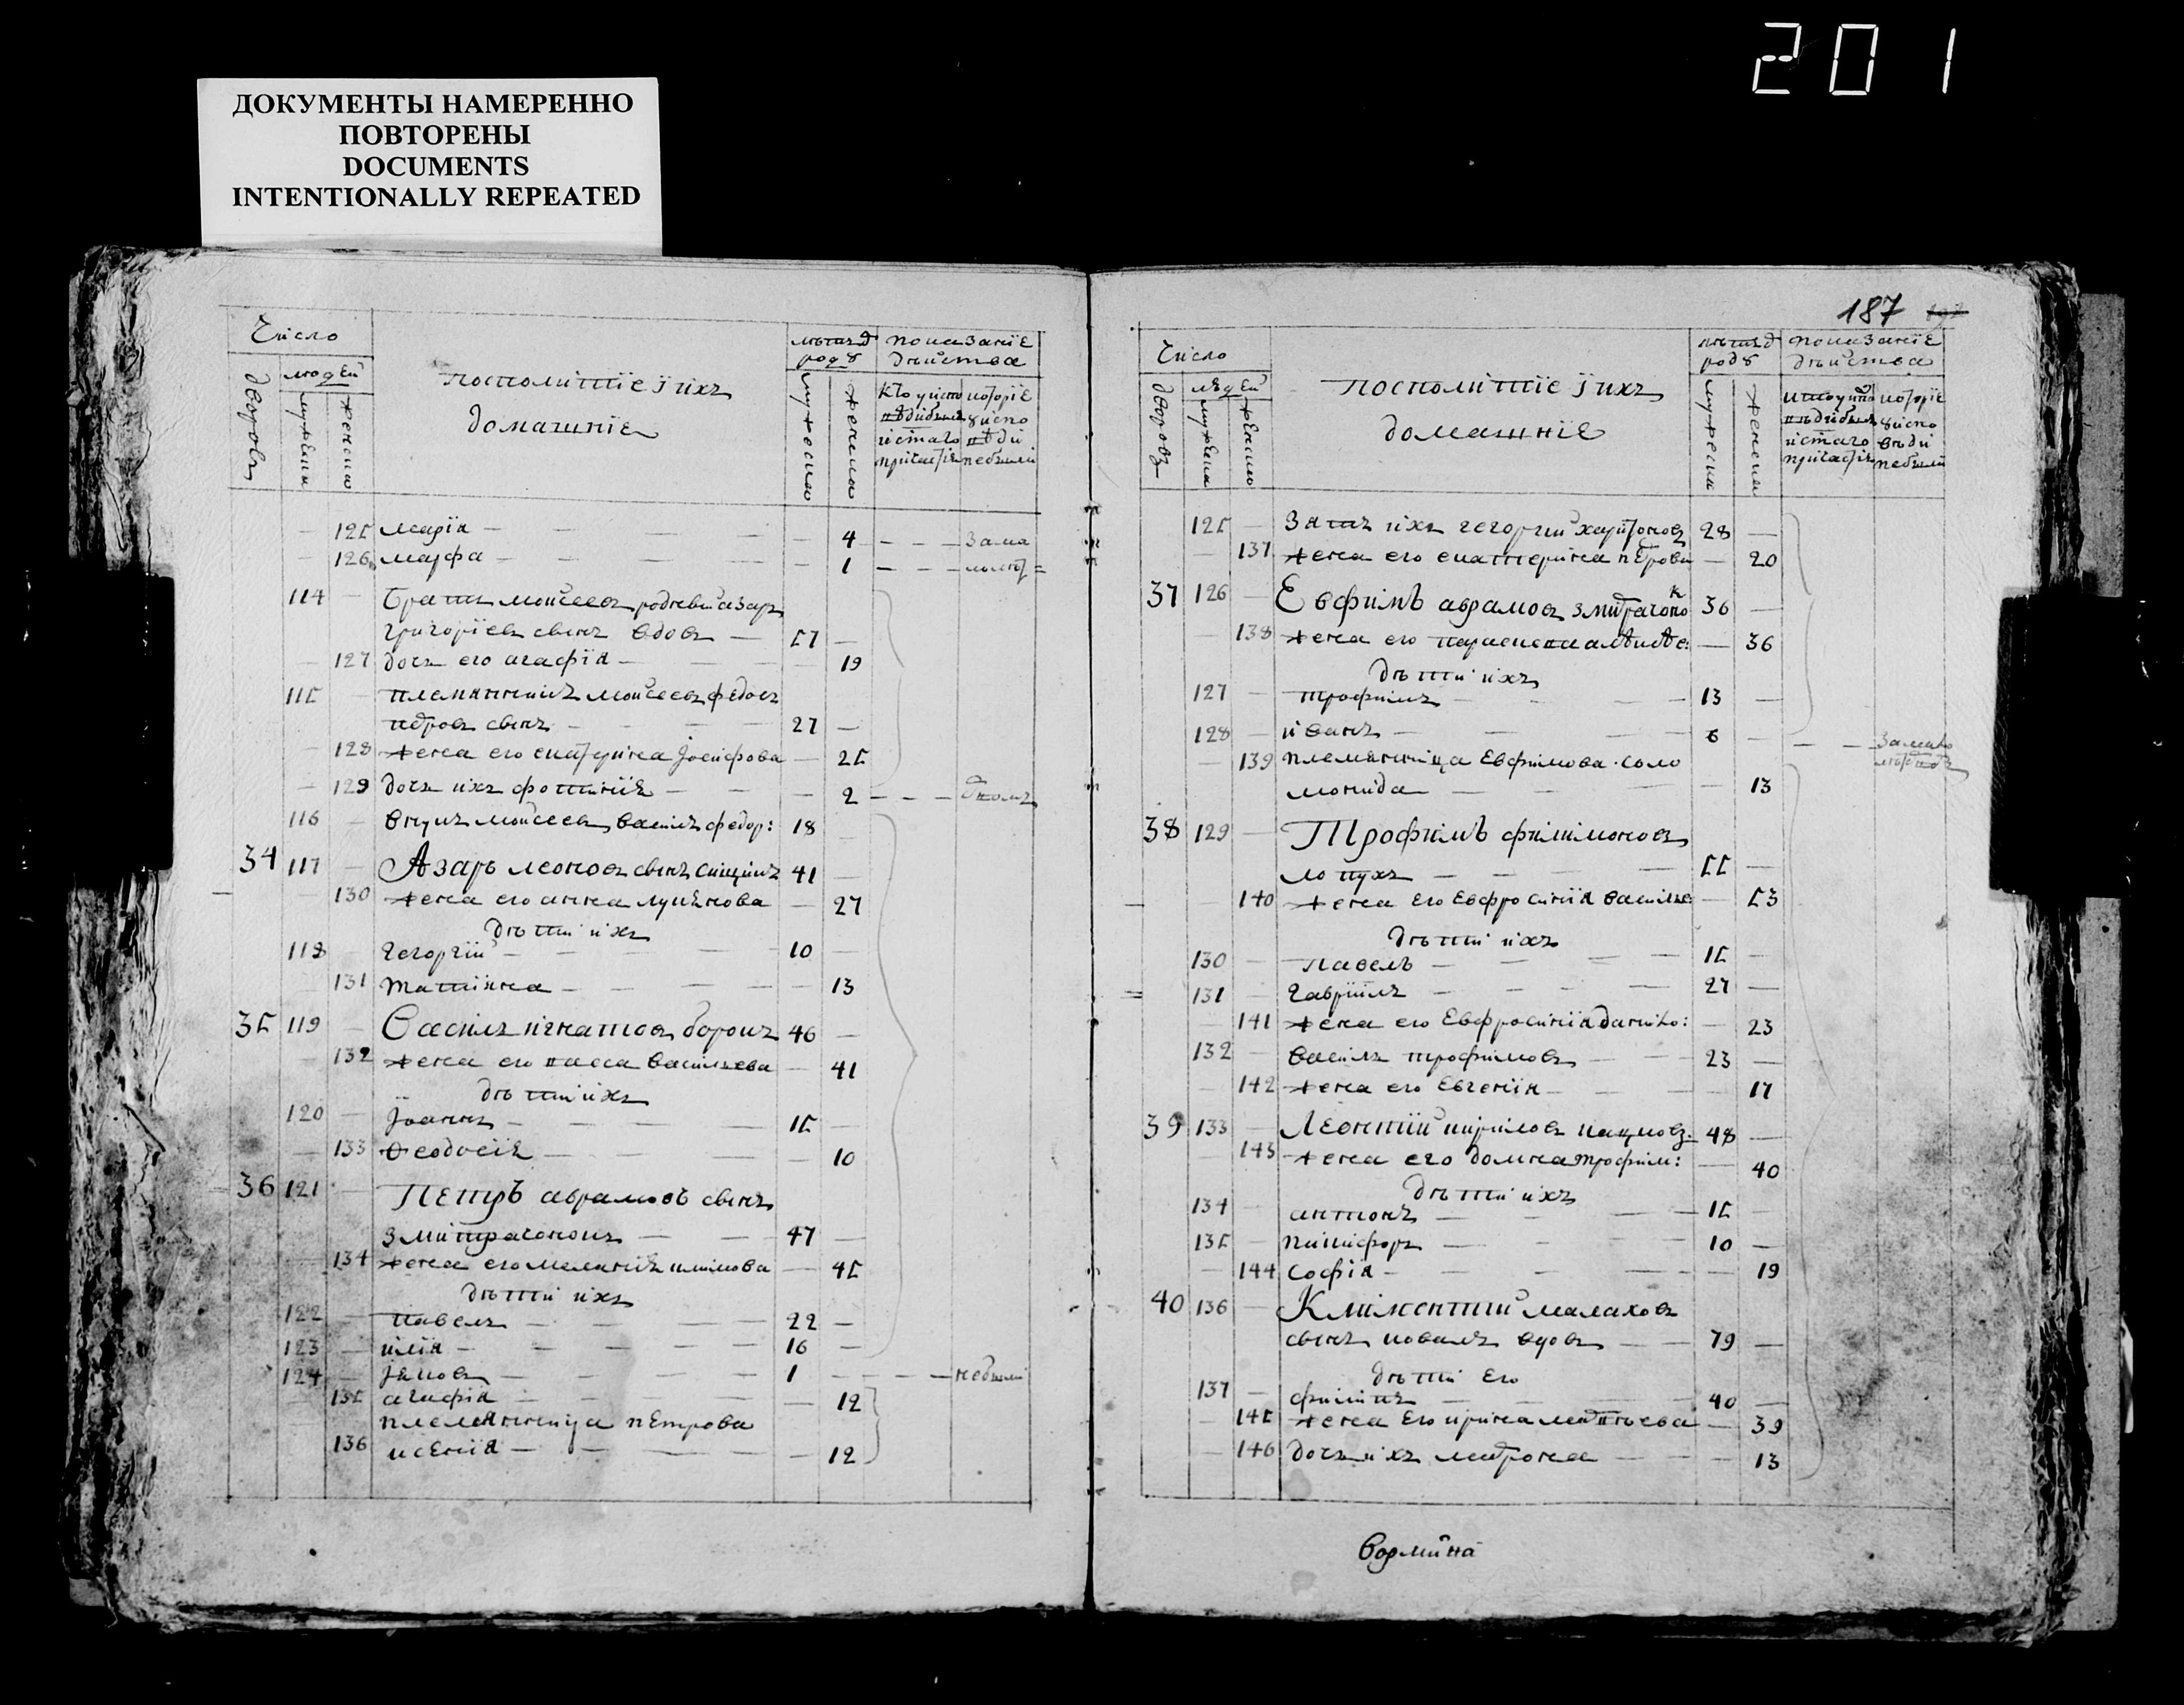 201
ДОКУМЕНТЫ НАМЕРЕННО
ПОВТОРЕНЫ
DOCUMENTS
INTENTIONALLY REPEATED
Число
людей
дворовъ
мужеска
женска
посполитıе ї ихъ
домашнїе
лѣтъ
роду
мужеска
женска
показанїе
дѣйства
125 марїа 4 За ма
126 марфа 1 лолѣт=
114 Братъ моисеевъ родный азаръ
григорїевъ сынъ вдовъ 57
127 дочь его агафїа 19
115 племянникъ моисеевъ федоръ
петровъ сынъ 27
128 жена его екатерина Їосифова 25
129 дочь ихъ фотинїя 2
116 внукъ моисеевъ василь федор: 18
34 117 Азаръ леоновъ сынъ 41
130 жена его анна лукянова 27
дѣти ихъ
118 георгїй 10
131 татїяна 13
35 119 Василь игнатовъ боронъ 46
132 жена его васса василева 41
дѣти ихъ
120 Їоаннъ 15
133 Феодосїя 10
36 121 Петръ аврамовъ сынъ
змитрагонокъ 47
134 жена его меланїя климова 45
дѣти ихъ
122 павелъ 22
123 илїя 16
124 Їяковъ 1 небыли
135 агафїя 12
племянница петрова
136 ксенїя 12
187
Число
людей
дворовъ
мужеска
женска
посполитїе ї ихъ
домашнїе
лѣтъ
роду
мужеска
женска
показанїе
дѣйства
125 Зять ихъ георгий харитоновъ 28
137 жена его екатерина петрова 20
37 126 Евфимъ аврамовъ змитрагоно к 36
138 жена его параскева 36
дѣти ихъ
127 трофимъ 13
128 иванъ 6
139 племянница Евфимова соло
монида 13
38 129 Трофимъ филимоновъ
лопухъ 55
140 жена его Евфросинїя василе 53
дѣти ихъ
130 павелъ 15
131 гаврїилъ 27
141 жена его Евфросинїя данило: 23
132 василь трофимовъ 23
142 жена его Евгенїя 17
39 133 Леонтий кириловъ 48
143 жена его домна трофим: 40
дѣти ихъ
134 антонъ 15
135 никифоръ 10
144 софїя 19
40 136 Климентий малаховъ
сынъ коваль вдовъ 79
дѣти его
137 филипъ 40
145 жена Его ирина матвѣева 39
146 дочь ихъ матрона 13